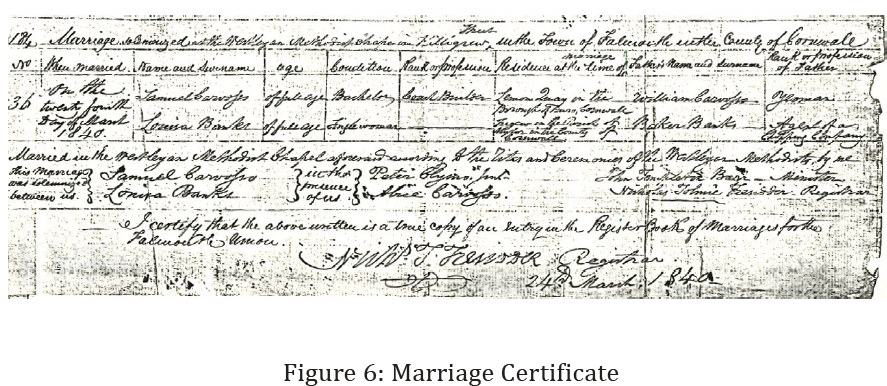 184 Marriage solemnized at the Wesleyan Methodist Chapel in Killigrew Street in the Town of Falmouth in the County of Cornwall
No When married Name and surname age Condition Rank or profession Residence at the time of marriage Father's Name and surname Rank or profession of Father
36 On the twenty fourth Day of March 1840. Samuel Carvosso of full age Bachelor Coach Builder Lemon Quay in the Borough of Truro, Cornwall William Carvosso Yeoman
Louisa Banks of full age Single woman in the Parish of Mylor in the County of Cornwall Baker Banks Agent of a Company
Married in the Wesleyan Methodist Chapel aforesaid according to the Rites and Ceremonies of the Wesleyan Methodists by me
this Marriage was solemnized between us. Samuel Carvosso Louisa Banks in the presence of us. Peter Junr. Alice Carvosso. John Minister
Nicholas Tresidder Registrar
I certify that the above written is a true copy of an entry in the Register Book of Marriages for the
Falmouth Union.
T. Tresidder Registrar.
24th March. 1840
Figure 6: Marriage Certificate